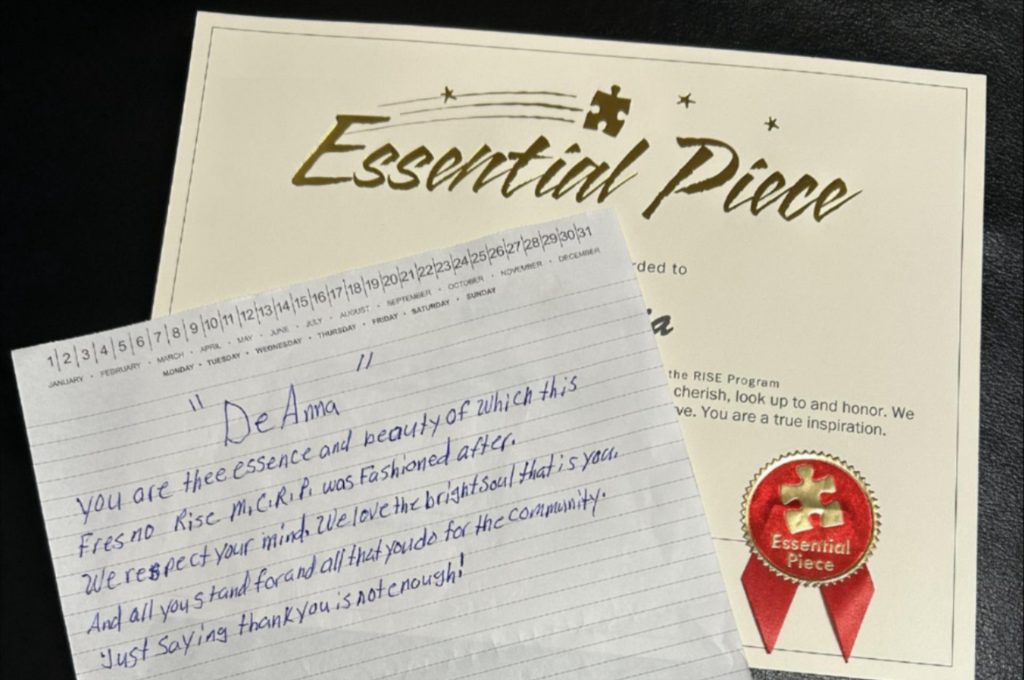 Essential Piece
rded to
ia
the RISE Program
cherish, look up to and honor. We
ve. You are a true inspiration.
Essential
Piece
1|2|3|4|5|6|7|8|9|10|11|12|13|14|15|16|17|18|19|20|21|22|23|24|25|26|27|28|29|30|31
JANUARY · FEBRUARY · MARCH · APRIL · MAY · JUNE · JULY · AUGUST · SEPTEMBER · OCTOBER · NOVEMBER · DECEMBER
MONDAY · TUESDAY · WEDNESDAY · THURSDAY · FRIDAY · SATURDAY · SUNDAY
"DeAnna"
You are thee essence and beauty of which this
Fresno Rise M.C.R.P. was Fashioned after.
We respect your mind. We love the bright soul that is you.
And all you stand for and all that you do for the community.
Just saying thank you is not enough!